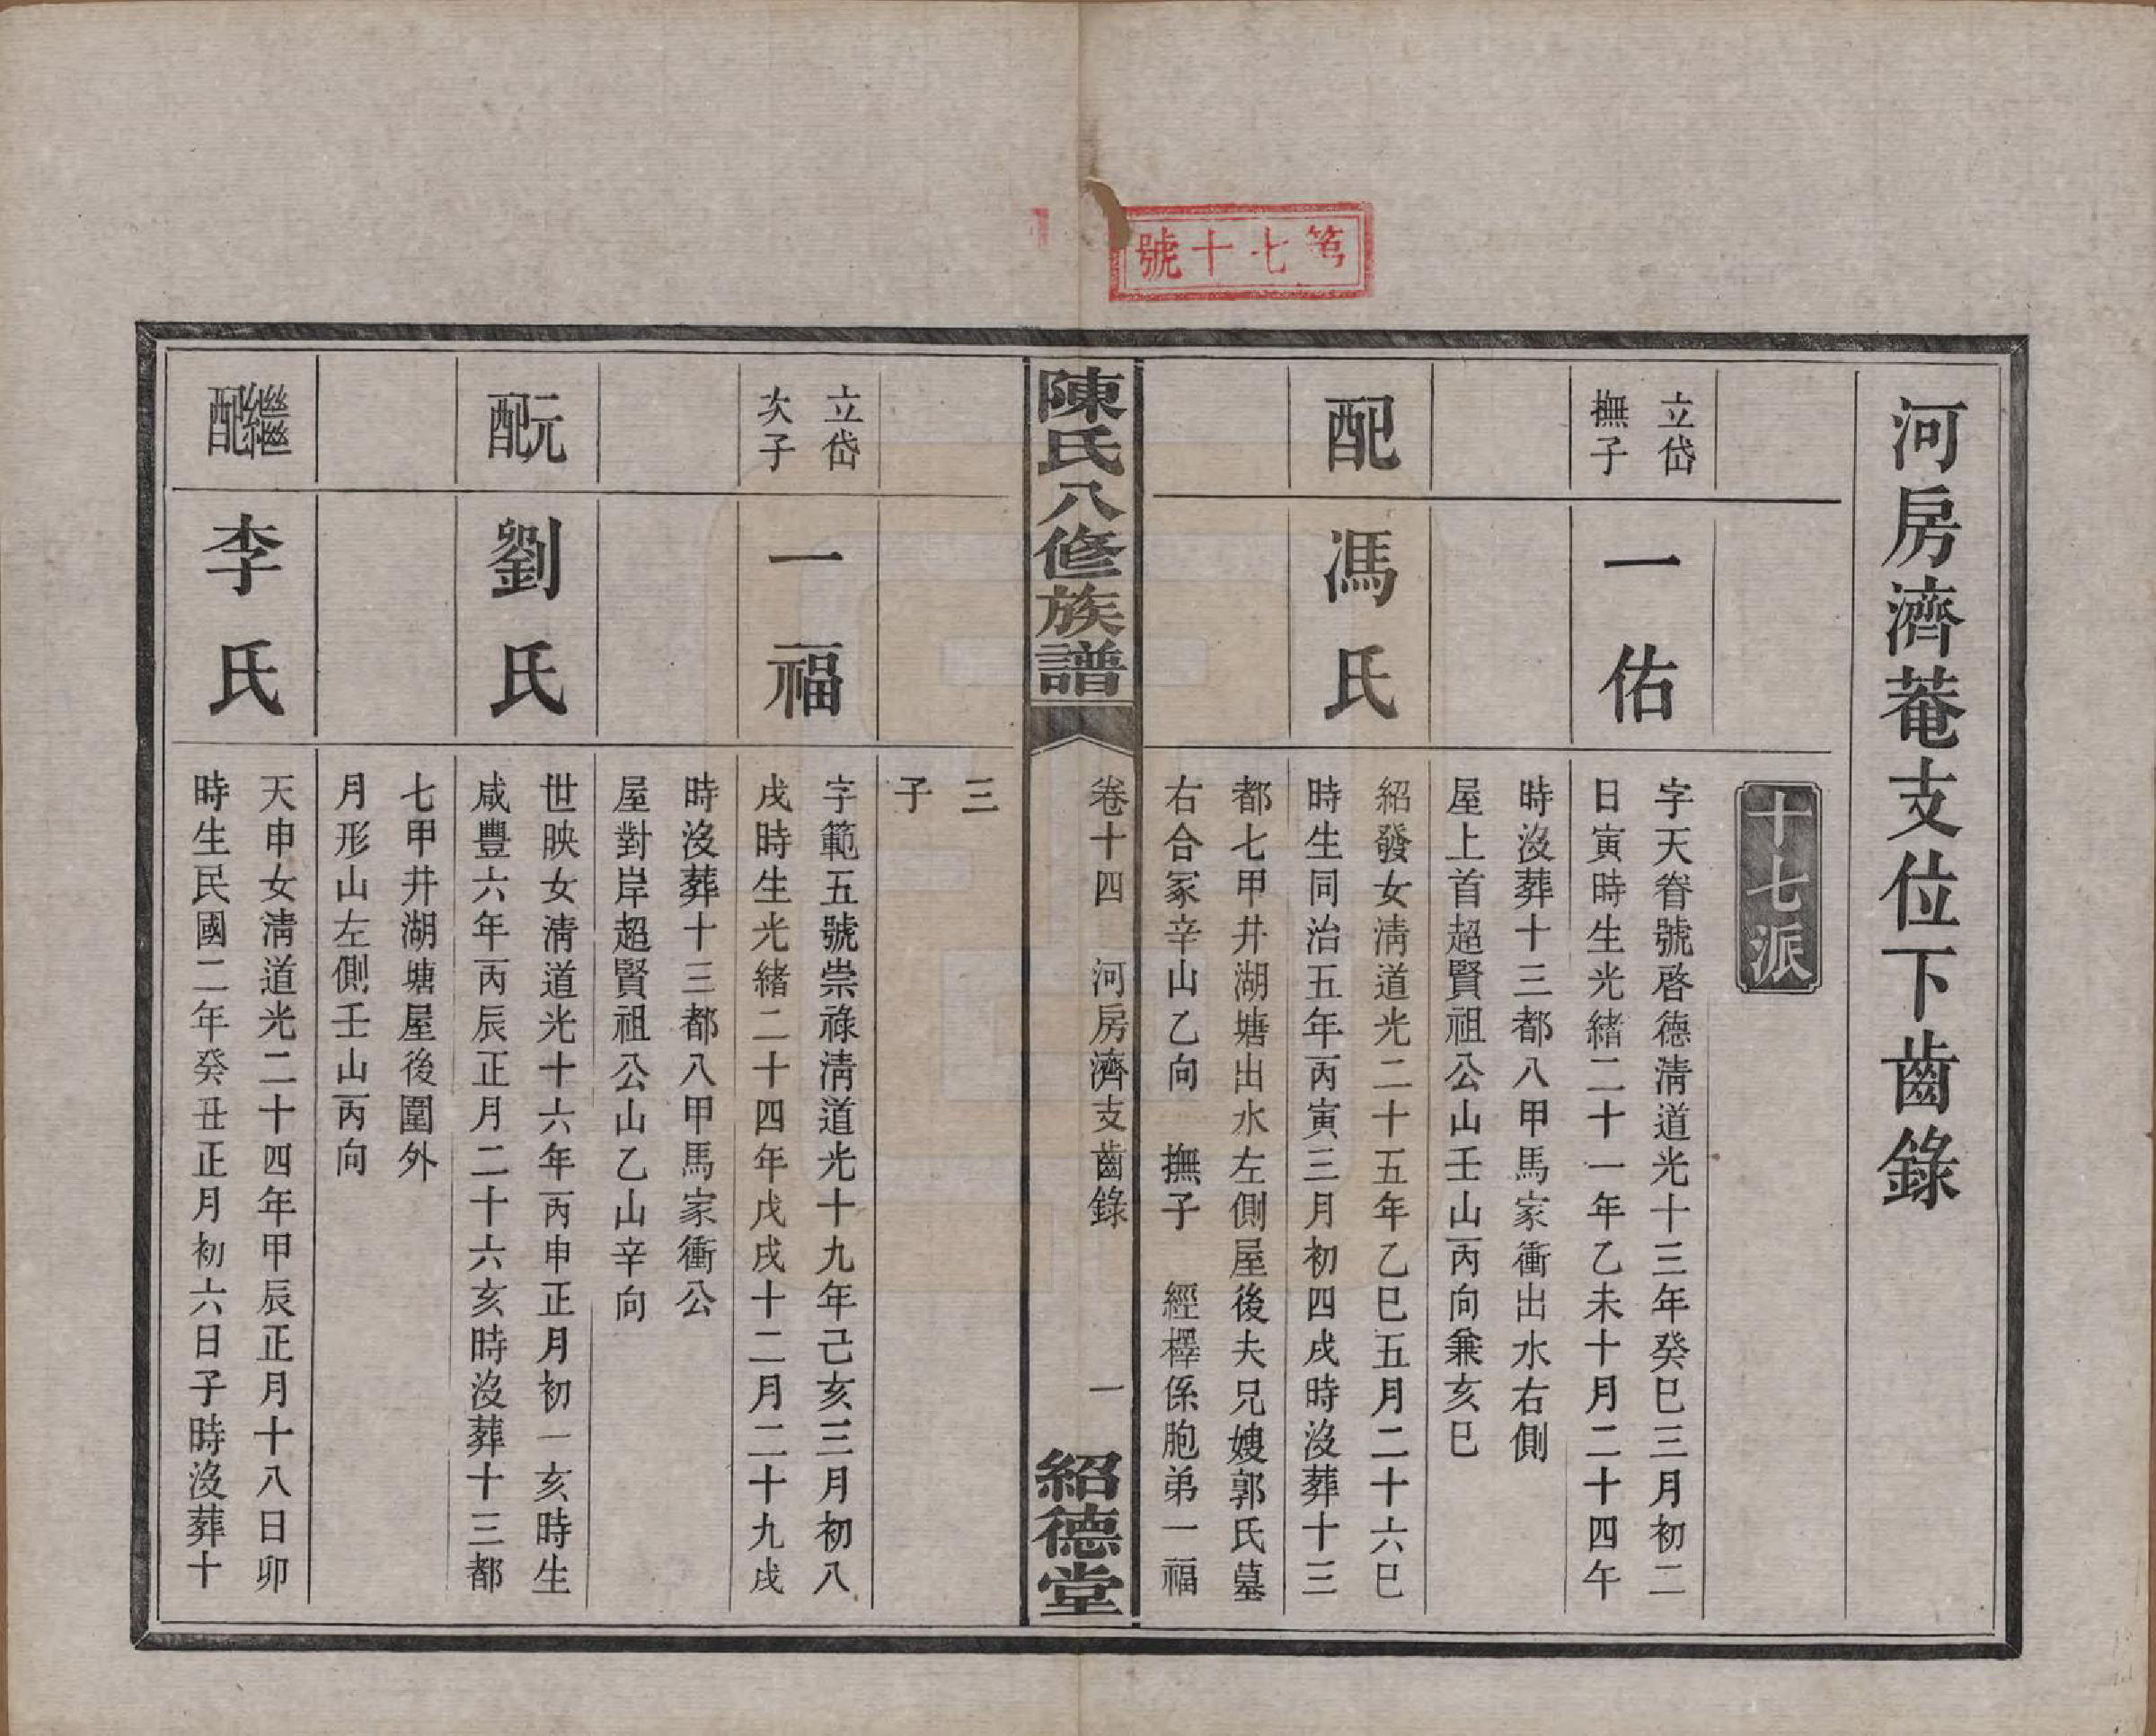 第七十號
河房濟菴支位下齒錄
十七派
立岱
撫子
一佑
字天眷號啓德淸道光十三年癸巳三月初二
日寅時生光緖二十一年乙未十月二十四午
時沒葬十三都八甲馬家衝出水右側
屋上首超賢祖公山壬山丙向兼亥巳
配
馮氏
紹發女淸道光二十五年乙巳五月二十六巳
時生同治五年丙寅三月初四戌時沒葬十三
都七甲井湖塘出水左側屋後夫兄嫂郭氏墓
右合冢辛山乙向 撫子 經檡係胞弟一福
三
子
陳氏八修族譜
卷十四 河房濟支齒錄 一
紹德堂
立岱
次子
一福
字範五號崇祿淸道光十九年己亥三月初八
戌時生光緖二十四年戊戌十二月二十九戌
時沒葬十三都八甲馬家衝公
屋對岸超賢祖公山乙山辛向
元配
劉氏
世映女淸道光十六年丙申正月初一亥時生
咸豐六年丙辰正月二十六亥時沒葬十三都
七甲井湖塘屋後圍外
月形山左側壬山丙向
繼配
李氏
天申女淸道光二十四年甲辰正月十八日卯
時生民國二年癸丑正月初六日子時沒葬十